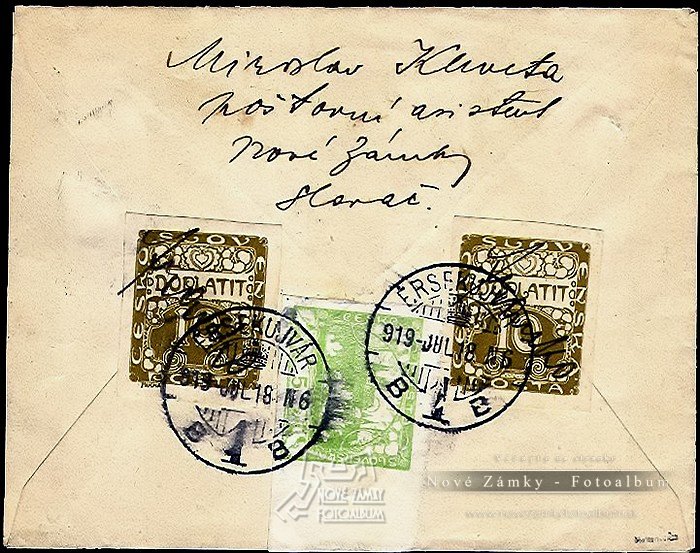 Miroslav Khveta
poštovní asistent
Nové Zámky
Slovač.
ČESKO SLOVENSKÁ POŠTA
DOPLATIT
ČESKO SLOVENSKÁ POŠTA
DOPLATIT
10
ÉRSEKUJVÁR
919-JUL.18.N6
B 1 B
ÉRSEKUJVÁR
919-JUL.18.N6
B 1 B
5
NOVÉ ZÁMKY
FOTOALBUM
Nové Zámky - Fotoalbum